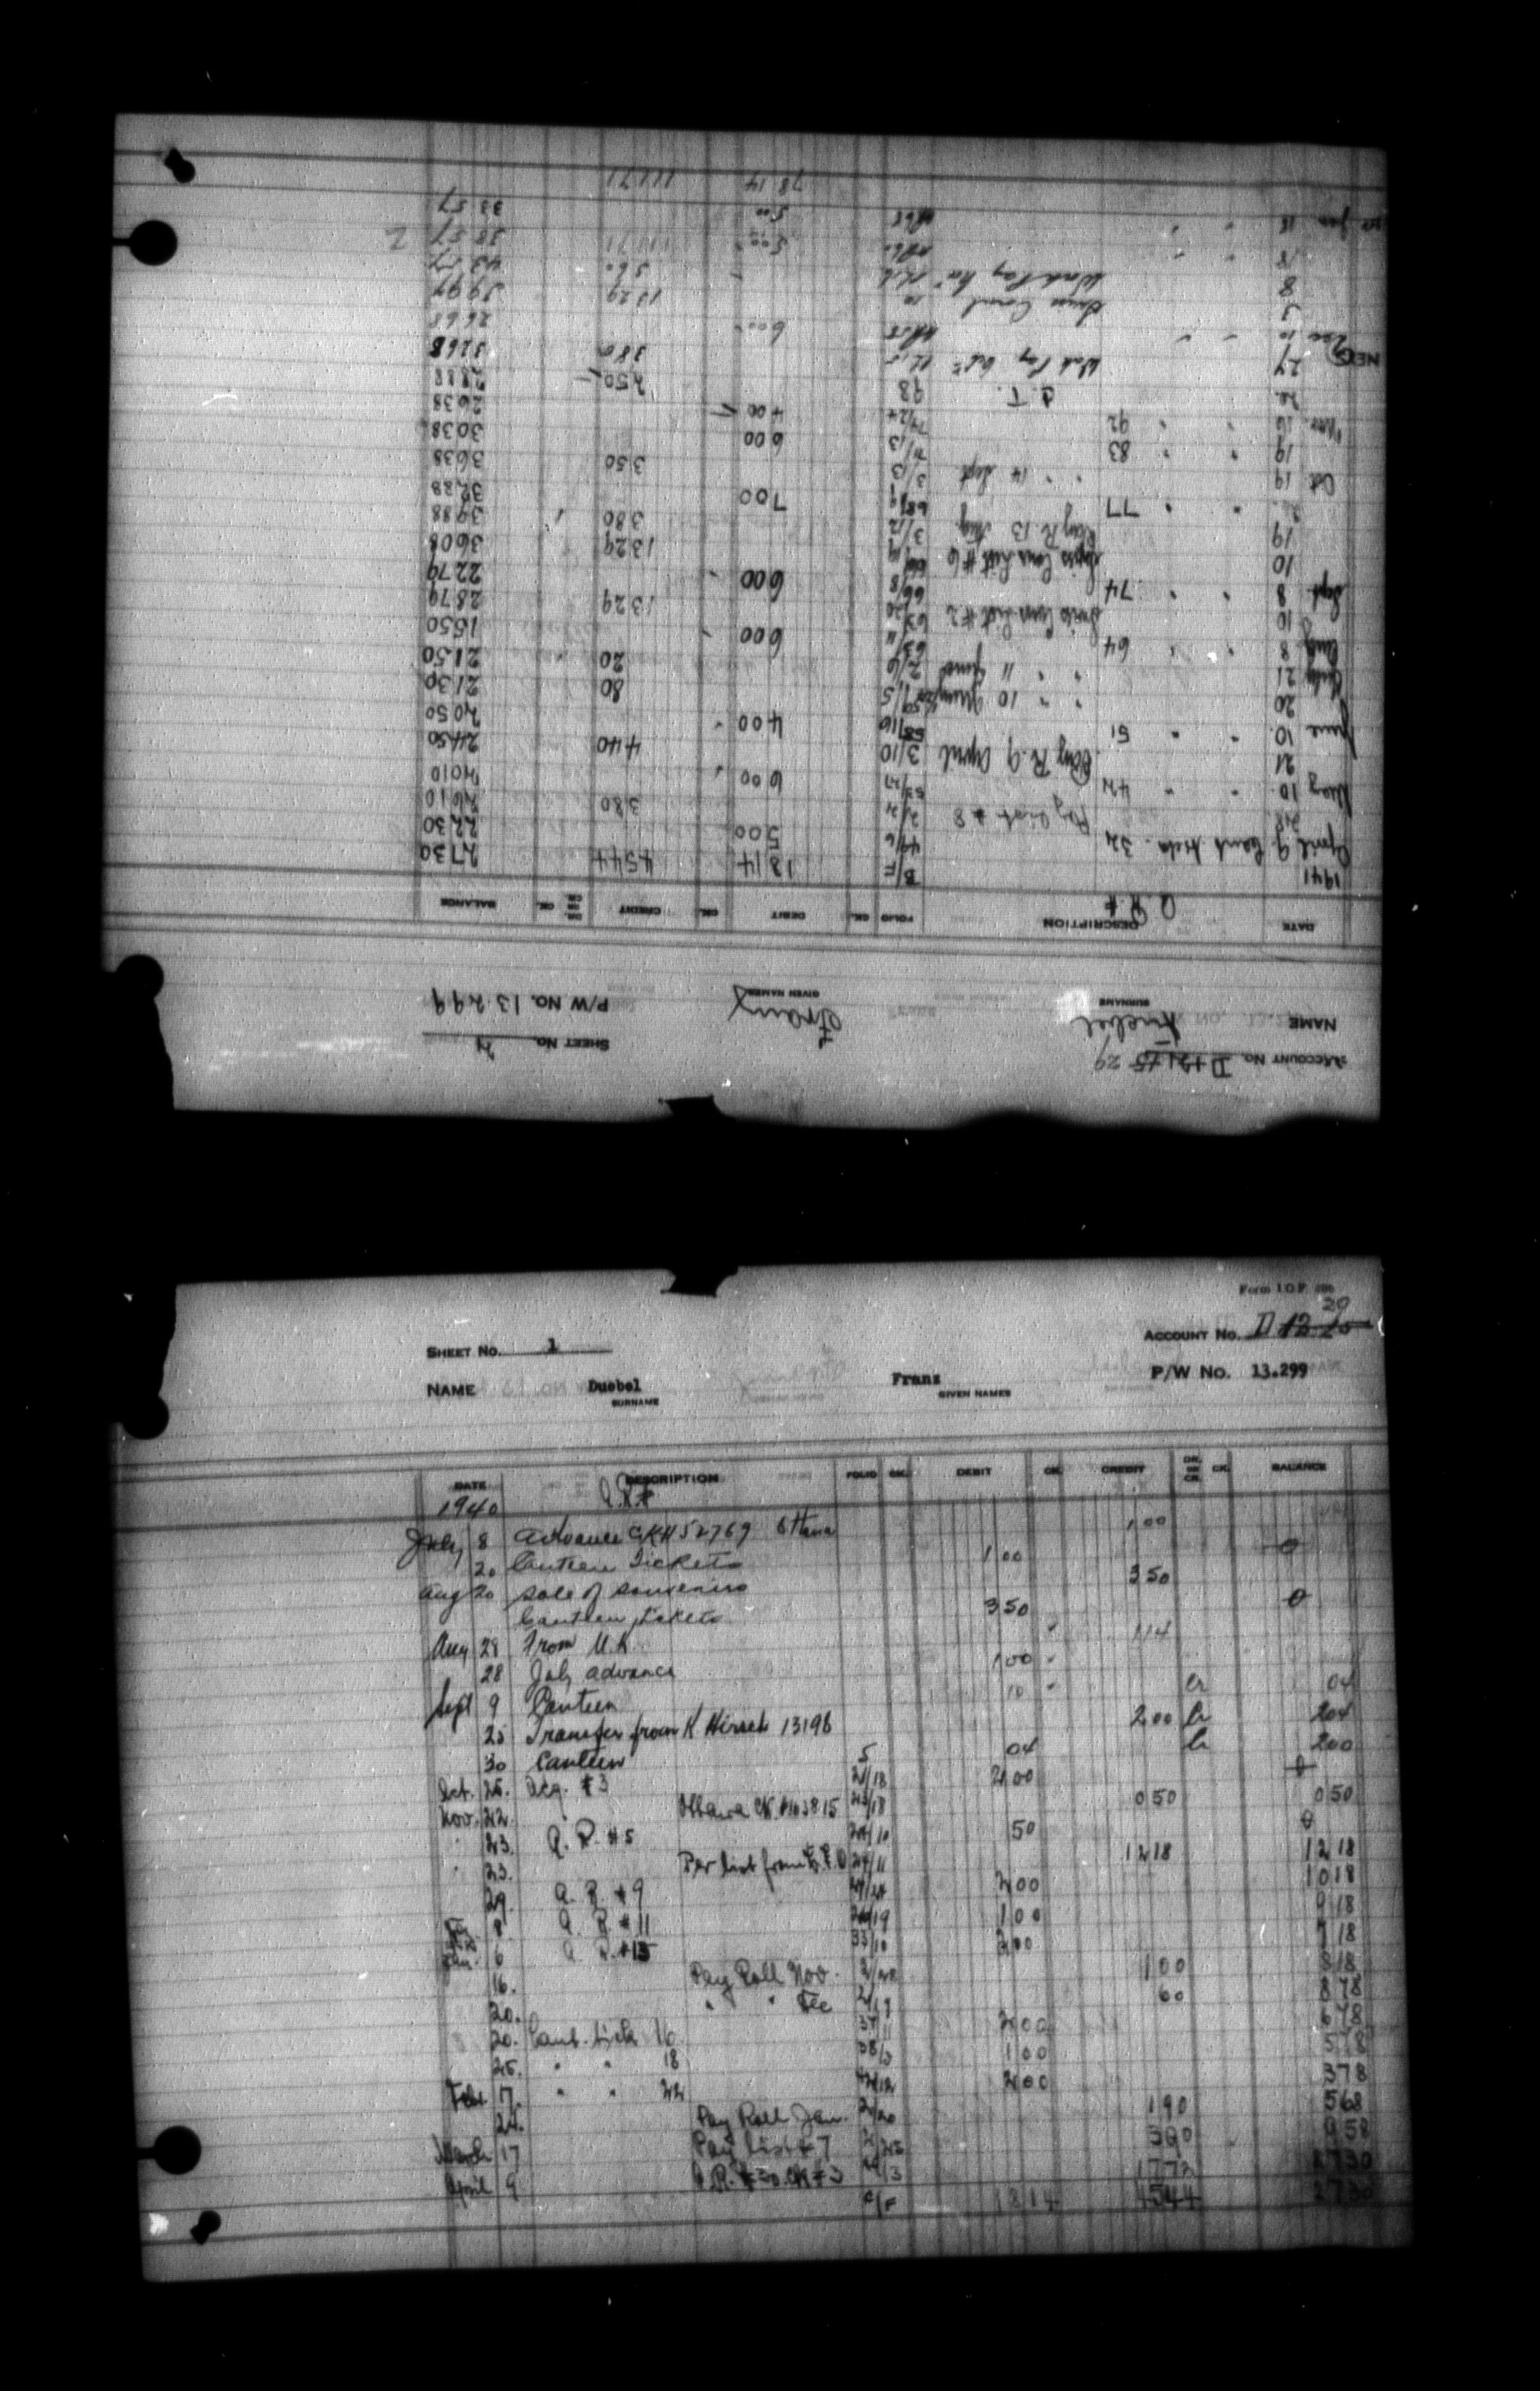 Form I.O.P.
20
SHEET No. 1 ACCOUNT No. D 12 20
NAME Duebel Franz P/W No. 13.299
SURNAME GIVEN NAMES
DATE DESCRIPTION FOLIO CK. DEBIT CK. CREDIT DR. OR CR. CK. BALANCE
1940
July 8 Advance CK# 52769 Ottawa 1 00
20 Canteen Tickets 1 00 0
Aug 20 Sale of souvenirs 3 50
Canteen tickets 3 50 0
Aug 28 From U.K. 1 14
28 July advance 1 00
Sept 9 Canteen 10 Cr 04
25 Transfer from K Hirsch 13198 2 00 Cr 2 04
30 Canteen 04 Cr 2 00
Oct. 25. Acq. #3 21/18 2 00 0
Nov. 22. Ottawa 23/18 0 50 0 50
" 23. A. R. #5 24/10 50 0
" 23. Per list from 24/11 12 18 12 18
29. A. R. #9 2 00 10 18
8. A. R. #11 1 00 9 18
Jan. 6 A. R. #13 33/10 2 00 7 18
16. Pay Roll Nov. 1 00 8 18
20. " " Dec 60 8 78
20. Cant. tick 16 37/11 2 00 6 78
25. " " 18 38/3 1 00 5 78
Feb 17. " " 22 42/12 2 00 3 78
24. Pay Roll Jan. 2/20 1 90 5 68
March 17 Pay List #7 3 90 9 58
April 9 17 72 27 30
C/F 18 14 45 44 27 30
ACCOUNT No. D 12 15 29 SHEET No. 2
NAME Knebel Franz P/W No. 13299
SURNAME GIVEN NAMES
DATE DESCRIPTION FOLIO CK. DEBIT CK. CREDIT DR. OR CR. CK. BALANCE
A.R.#
1941 B/F 18 14 45 44 27 30
April 9 Cant. ticks. 32 49/6 5 00 22 30
28 Pay List #8 2/21 3 80 26 10
May 10. " " 42 53/27 6 00 20 10
21 Pay R. 9 April 3/10 4 40 24 50
June 10 " " 51 58/16 4 00 20 50
20 " " 10 80 21 30
July 21 " " 11 June 2/6 20 21 50
Aug 8 " " 64 63/11 6 00 15 50
10 Swiss Cons List #2 63/20 13 29 28 79
Sept 8 " " 74 66/8 6 00 22 79
10 Swiss Cons List #6 13 29 36 08
19 Pay R. 13 Aug. 3/12 3 80 39 88
" " 77 68/9 7 00 32 88
Oct 19 " " 14 Sept 3/13 3 50 36 38
19 " " 83 71/13 6 00 30 38
Nov. 16 " " 92 74/24 4 00 26 38
20. C. T. 98 2 50 28 88
27 Work Pay Oct 3 80 32 68
Dec 10 " " 6 00 26 68
3 Swiss Consul 13 29 39 97
8 Work Pay Nov 3 60 43 57
18 " " 5 00 111 71 38 57 2
Jan 15 " " 5 00 33 57
78 14 111 71